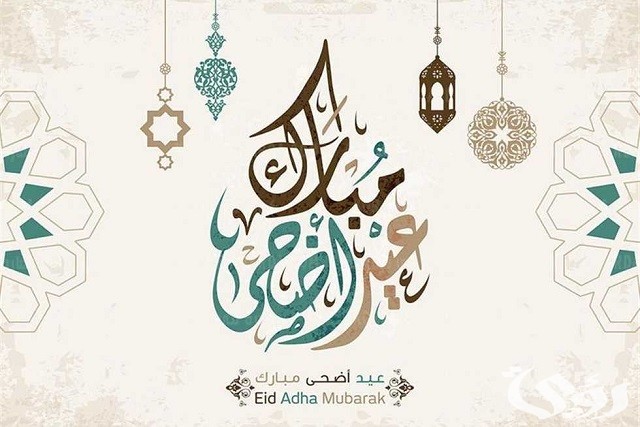 عيد أضحى مبارك
عيد أضحى مبارك
Eid Adha Mubarak
رؤى